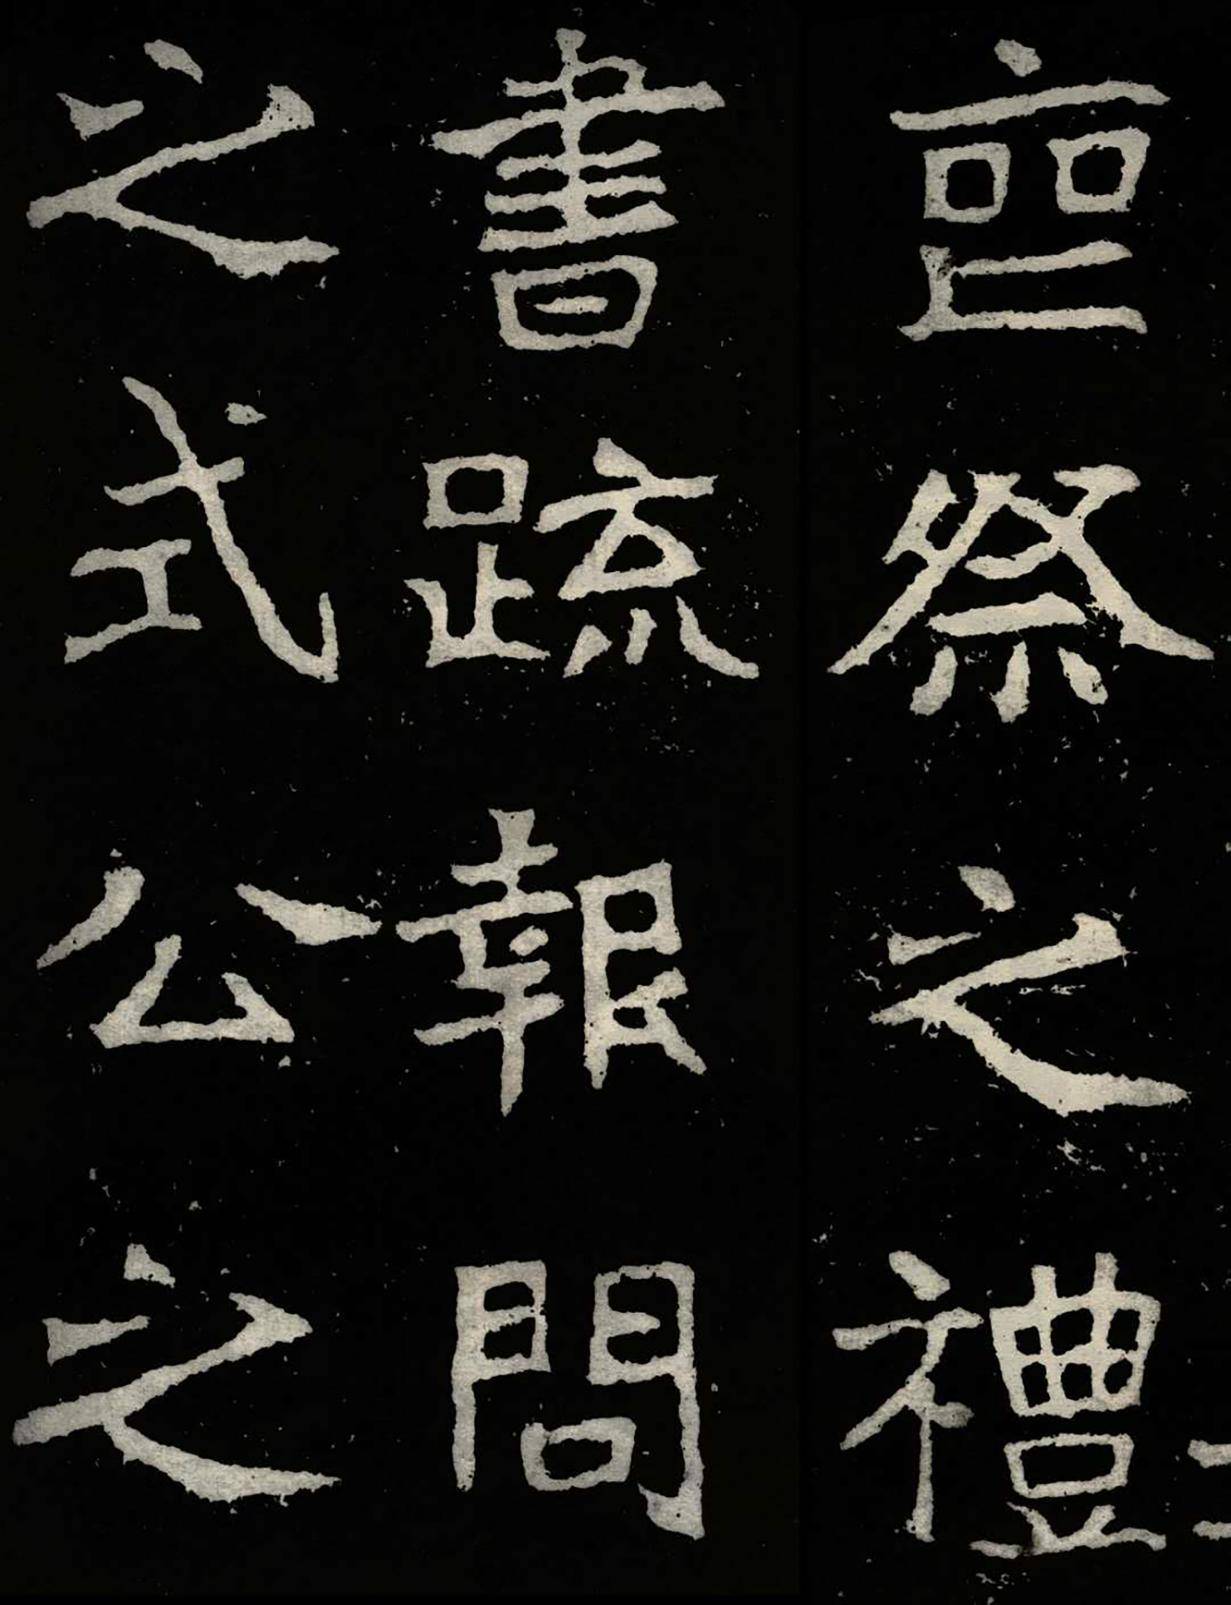 喪祭之禮
書疏報問
之式公之